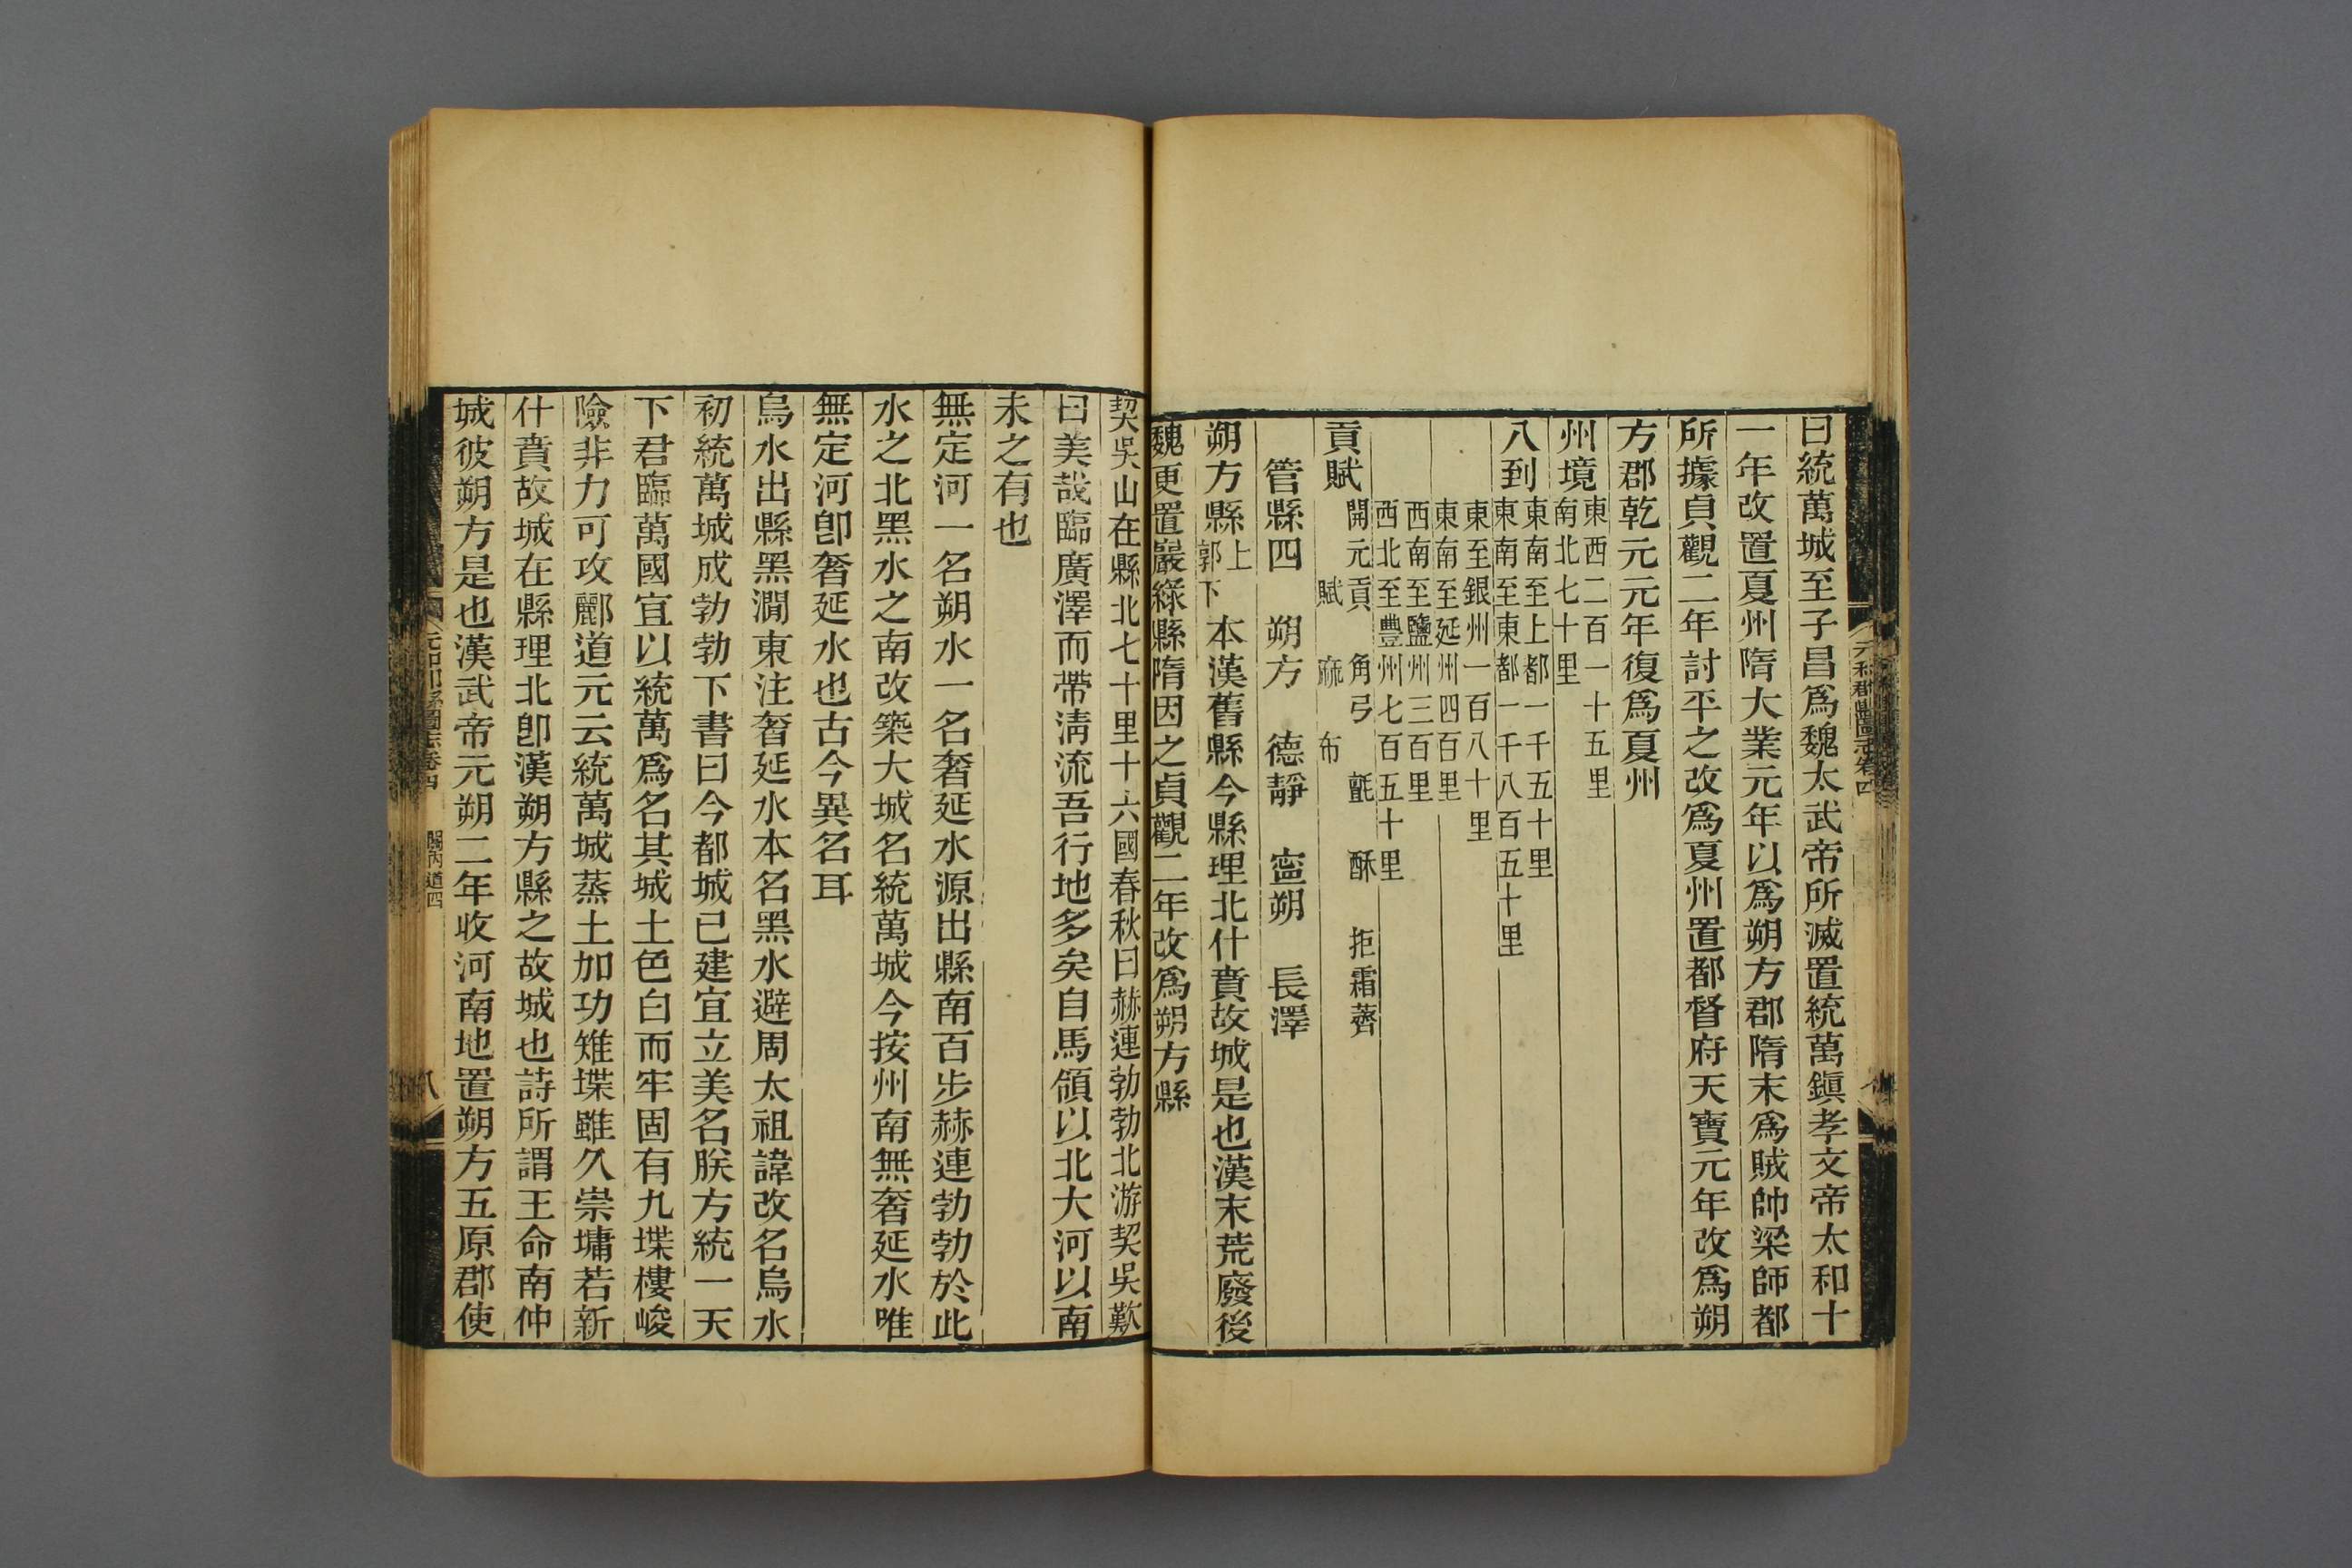 曰統萬城至子昌爲魏太武帝所滅置統萬鎭孝文帝太和十
一年改置夏州隋大業元年以爲朔方郡隋末爲賊帥梁師都
所據貞觀二年討平之改爲夏州置都督府天寶元年改爲朔
方郡乾元元年復爲夏州
州境東西二百一十五里
南北七十里
八到東南至上都一千五十里
東南至東都一千八百五十里
東至銀州一百八十里
東南至延州四百里
西南至鹽州三百里
西北至豐州七百五十里
貢賦開元貢 角弓 氈 酥 拒霜薺
賦 麻 布
管縣四 朔方 德靜 寧朔 長澤
朔方縣上
郭下
本漢舊縣今縣理北什賁故城是也漢末荒廢後
魏更置巖綠縣隋因之貞觀二年改爲朔方縣
契吳山在縣北七十里十六國春秋曰赫連勃勃北游契吳歎
曰美哉臨廣澤而帶淸流吾行地多矣自馬領以北大河以南
未之有也
無定河一名朔水一名奢延水源出縣南百步赫連勃勃於此
水之北黑水之南改築大城名統萬城今按州南無奢延水唯
無定河卽奢延水也古今異名耳
烏水出縣黑澗東注奢延水本名黑水避周太祖諱改名烏水
初統萬城成勃勃下書曰今都城已建宜立美名朕方統一天
下君臨萬國宜以統萬爲名其城土色白而牢固有九堞樓峻
險非力可攻酈道元云統萬城蒸土加功雉堞雖久崇墉若新
什賁故城在縣理北卽漢朔方縣之故城也詩所謂王命南仲
城彼朔方是也漢武帝元朔二年收河南地置朔方五原郡使
元和郡縣圖志卷四 關內道四
八